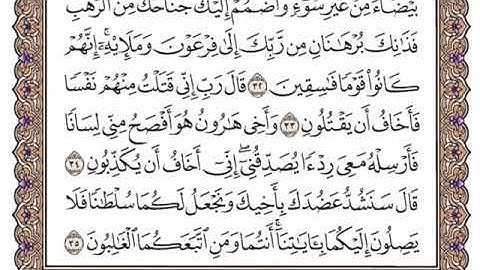 بَيۡضَآءَ مِنۡ غَيۡرِ سُوٓءٖ وَٱضۡمُمۡ إِلَيۡكَ جَنَاحَكَ مِنَ ٱلرَّهۡبِۖ
فَذَٰنِكَ بُرۡهَٰنَانِ مِن رَّبِّكَ إِلَىٰ فِرۡعَوۡنَ وَمَلَإِيْهِۦٓۚ إِنَّهُمۡ
كَانُواْ قَوۡمٗا فَٰسِقِينَ ٣٢ قَالَ رَبِّ إِنِّي قَتَلۡتُ مِنۡهُمۡ نَفۡسٗا
فَأَخَافُ أَن يَقۡتُلُونِ ٣٣ وَأَخِي هَٰرُونُ هُوَ أَفۡصَحُ مِنِّي لِسَانٗا
فَأَرۡسِلۡهُ مَعِيَ رِدۡءٗا يُصَدِّقُنِيٓۖ إِنِّيٓ أَخَافُ أَن يُكَذِّبُونِ ٣٤
قَالَ سَنَشُدُّ عَضُدَكَ بِأَخِيكَ وَنَجۡعَلُ لَكُمَا سُلۡطَٰنٗا فَلَا
يَصِلُونَ إِلَيۡكُمَا بِـَٔايَٰتِنَآۚ أَنتُمَا وَمَنِ ٱتَّبَعَكُمَا ٱلۡغَٰلِبُونَ ٣٥